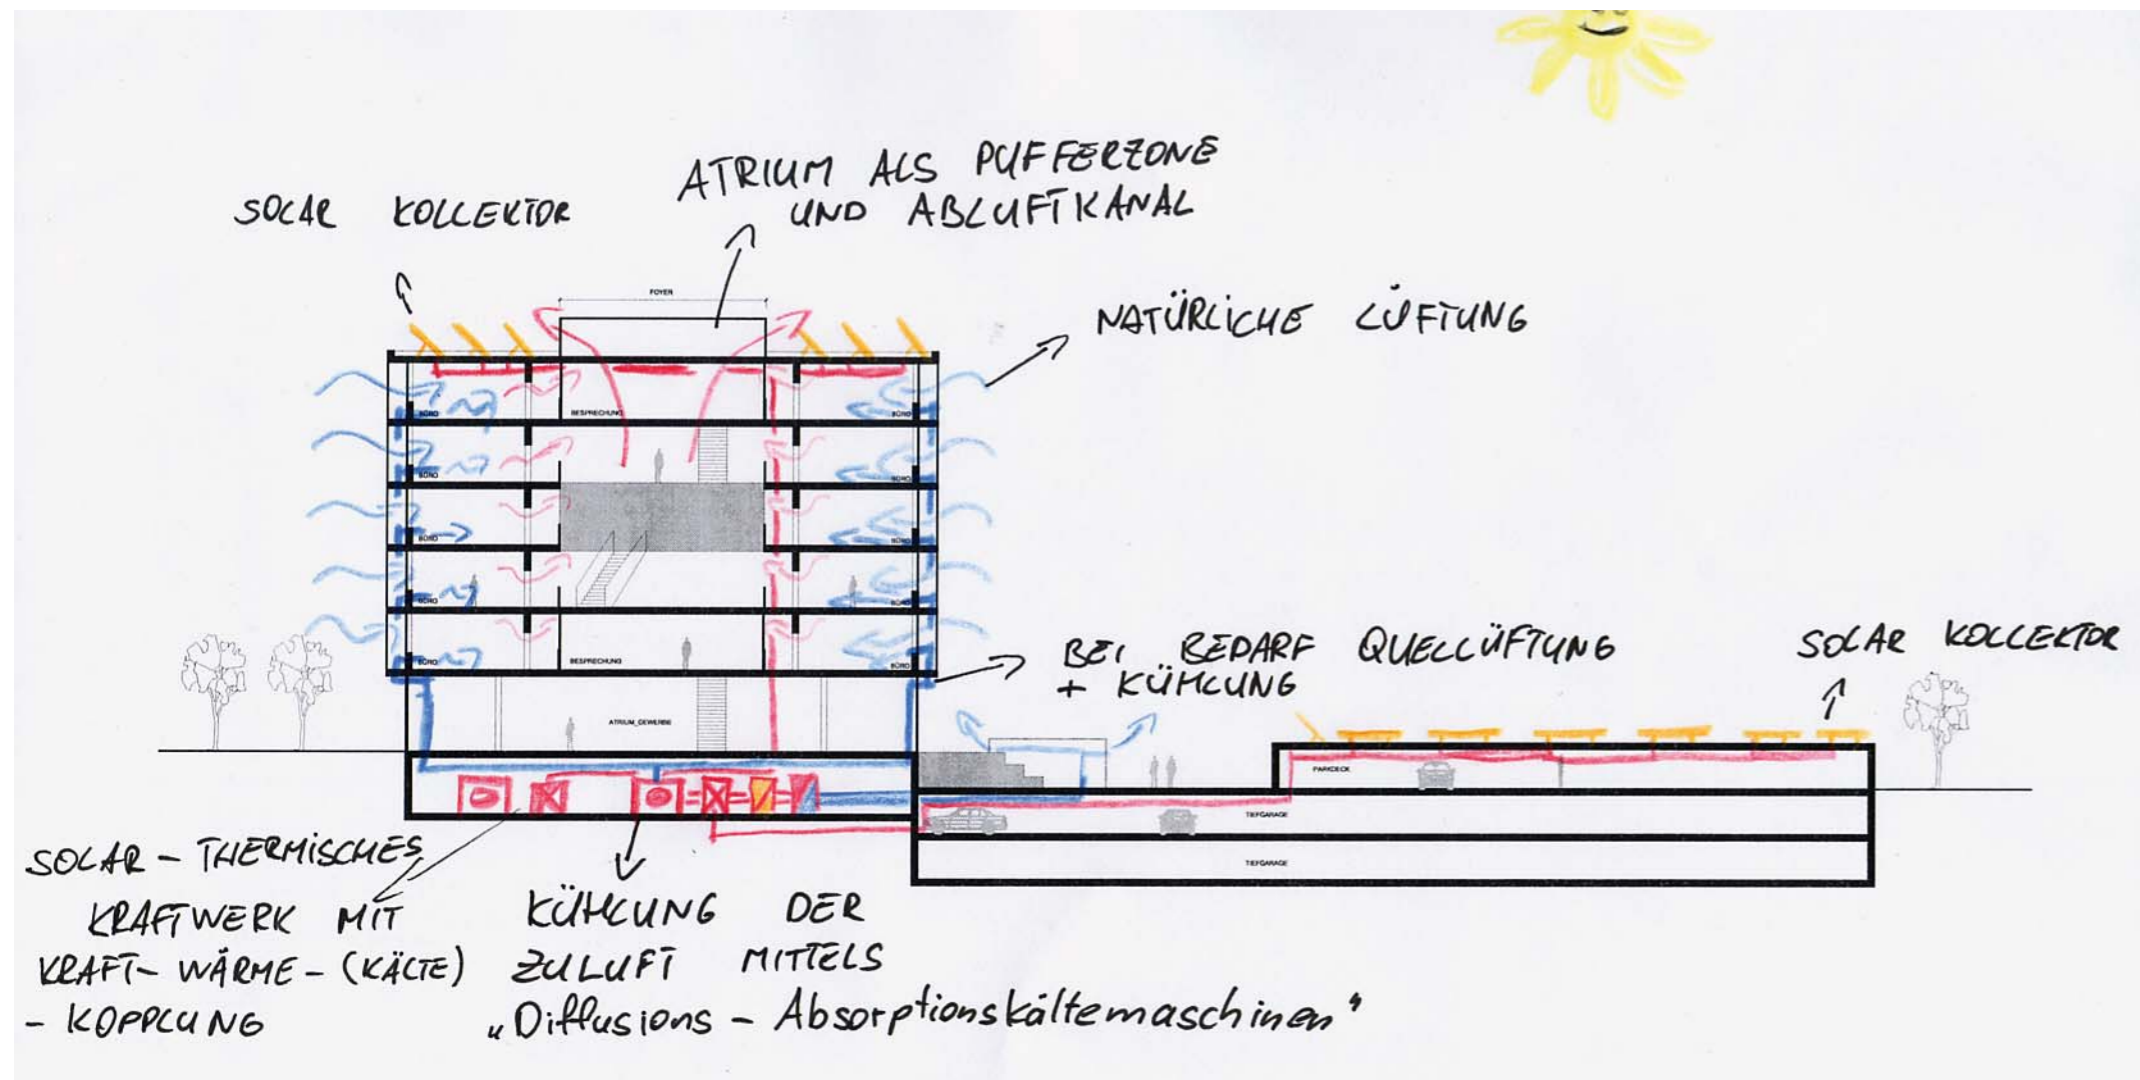 ATRIUM ALS PUFFERZONE
UND ABLUFTKANAL
SOLAR KOLLEKTOR
FOYER
NATÜRLICHE LÜFTUNG
BÜRO
BESPRECHUNG
BÜRO
BÜRO
BÜRO
BÜRO
BÜRO
BÜRO
BÜRO
BÜRO
BESPRECHUNG
BÜRO
BEI BEDARF QUELLÜFTUNG
+ KÜHLUNG
SOLAR KOLLEKTOR
ATRIUM_GEWERBE
PARKDECK
TIEFGARAGE
TIEFGARAGE
SOLAR - THERMISCHES
KRAFTWERK MIT
KRAFT- WÄRME - (KÄLTE)
- KOPPLUNG
KÜHLUNG DER
ZULUFT MITTELS
„Diffusions - Absorptionskältemaschinen"